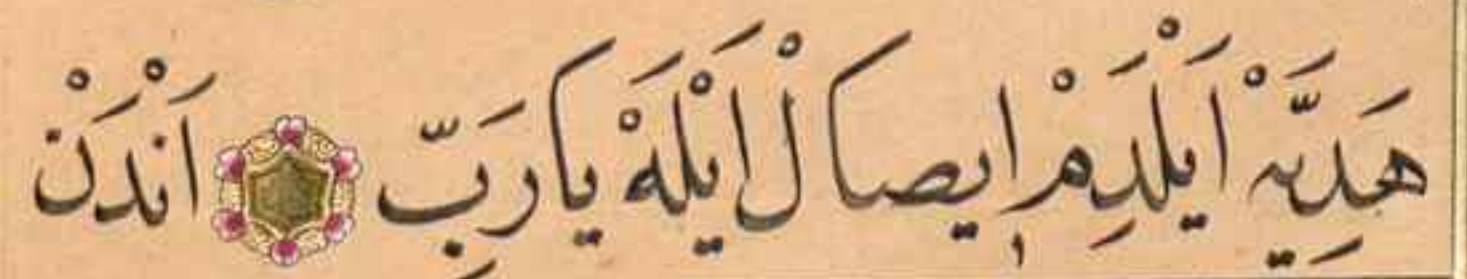 هَدِيَّهْ اَيْلَدِمْ اِيصَالْ اَيْلَهْ يَارَبِّ اَنْدَنْ